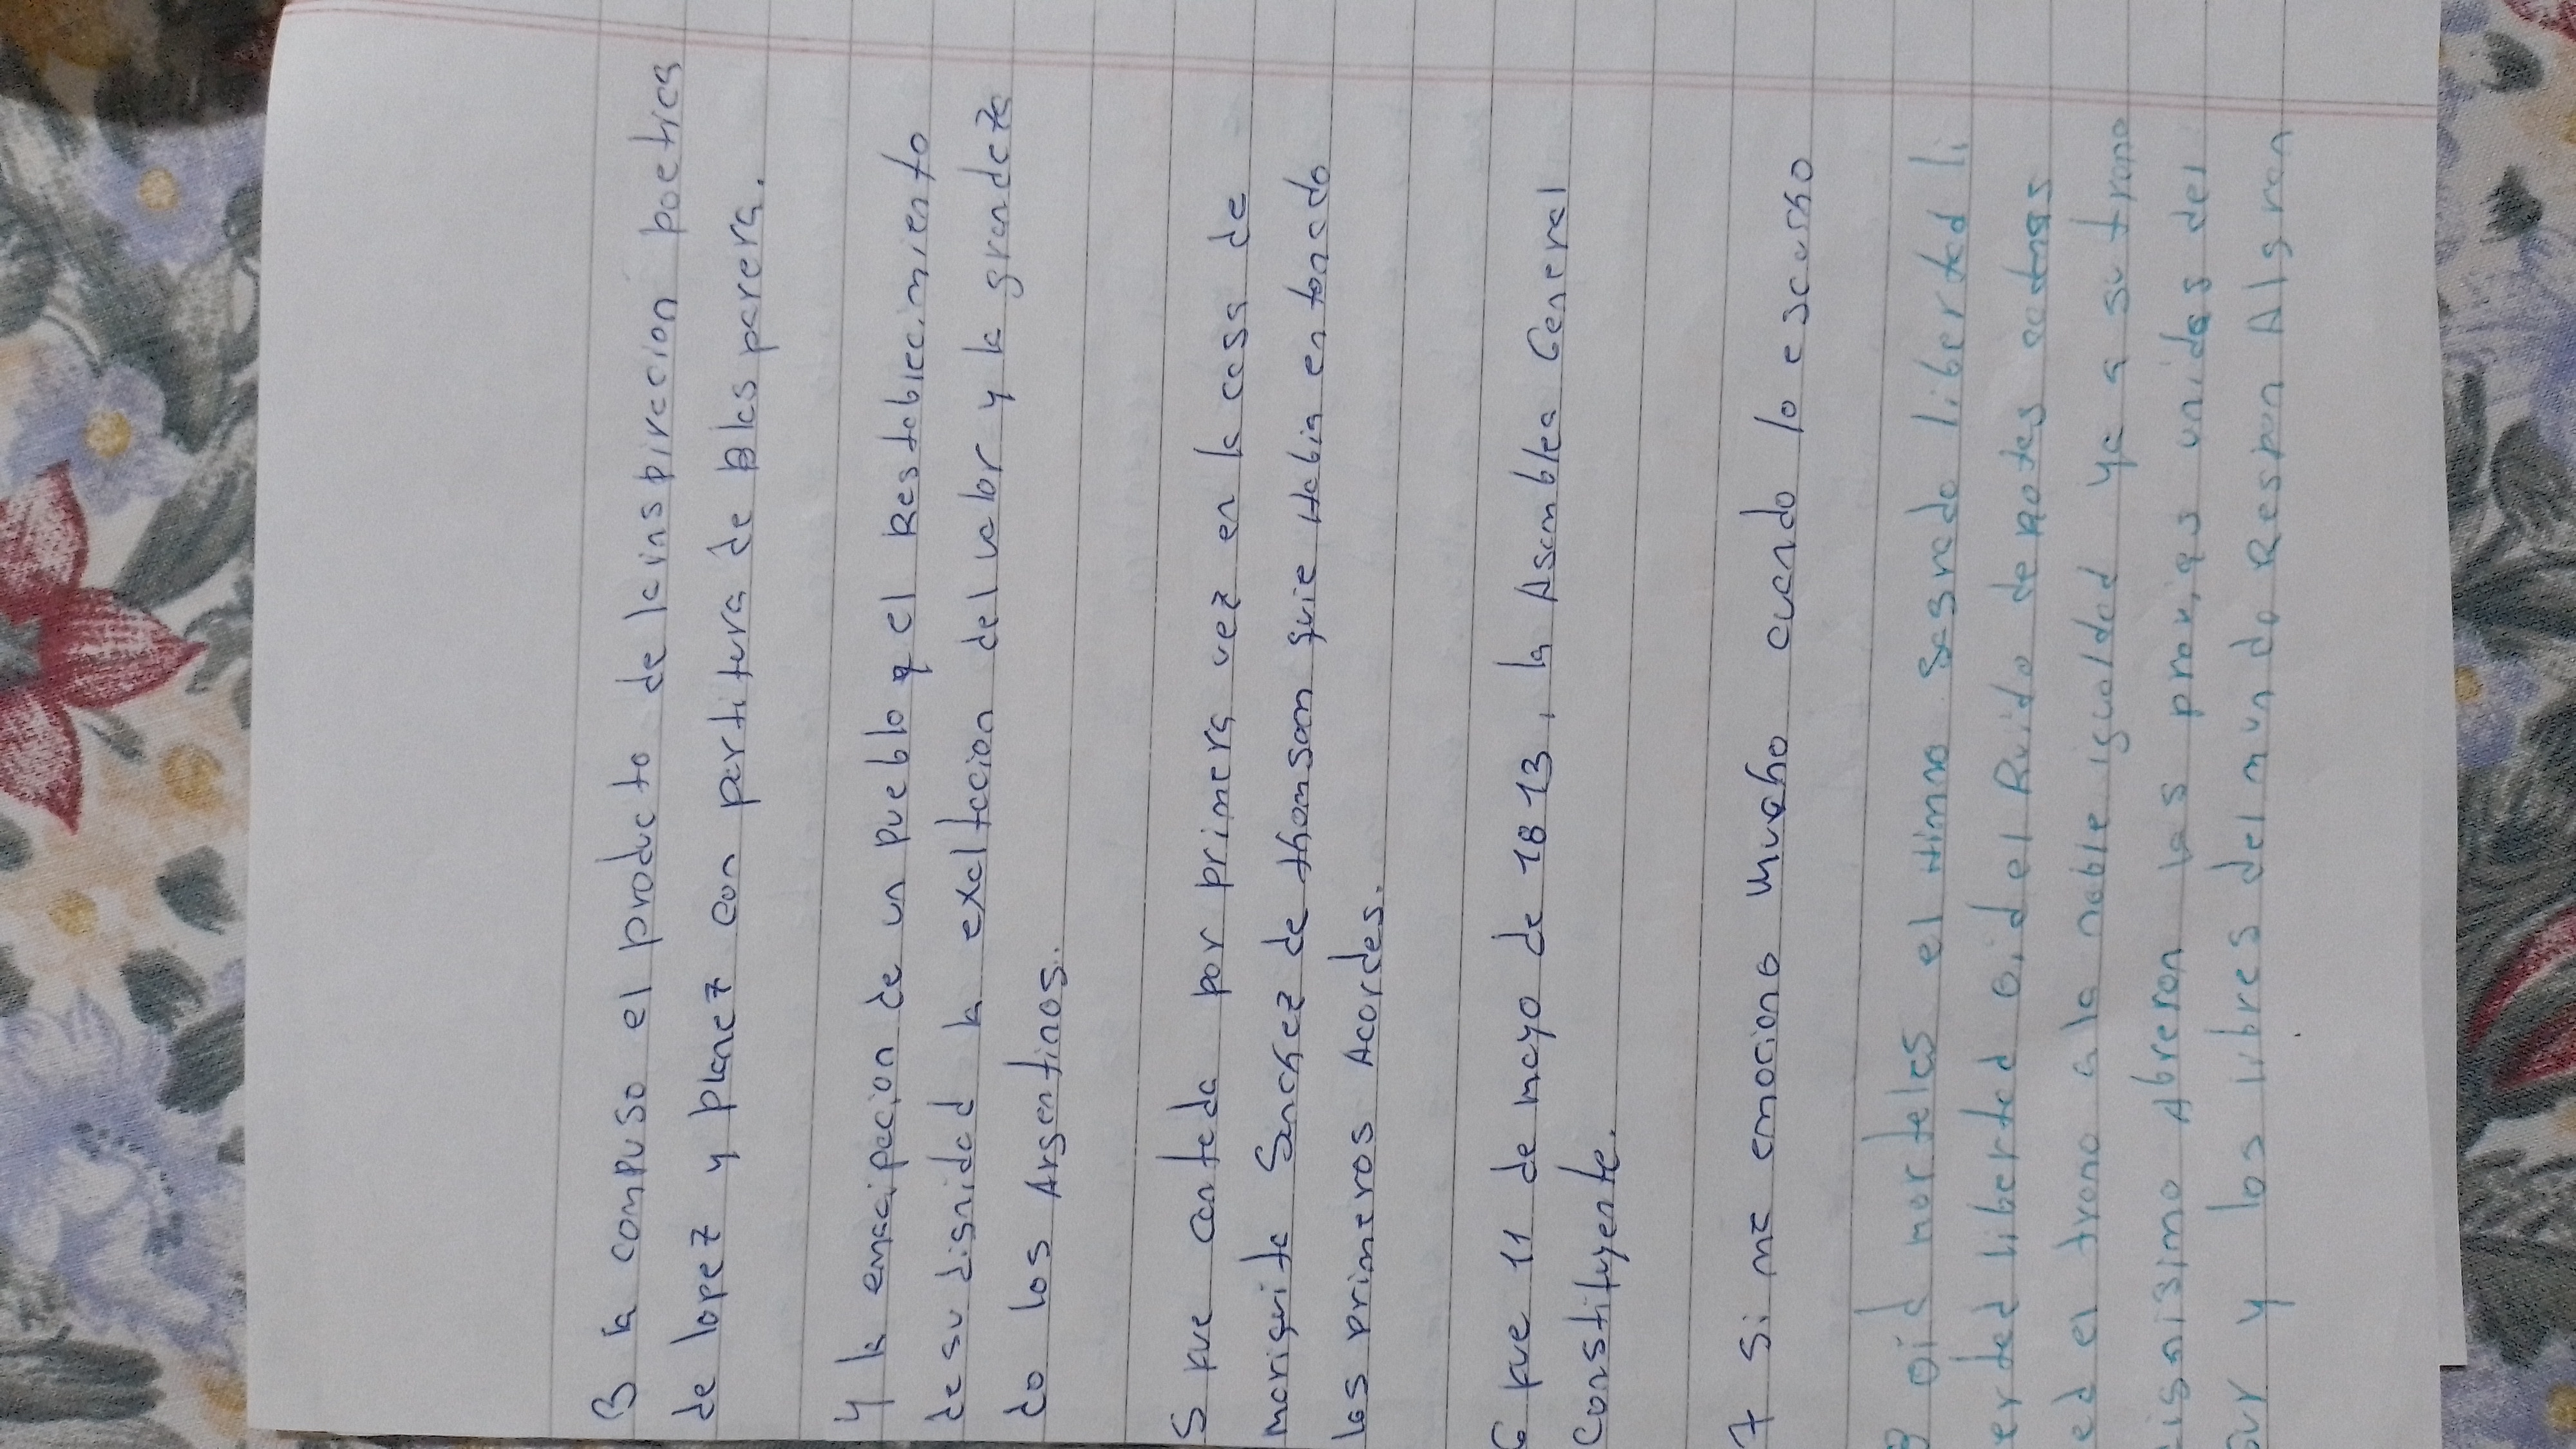 3 la compuso el producto de la inspiracion poetica
de lopez y planez con partitura de Blas parera.
4 la emacipacion de un pueblo q el Restablecimiento
de su dignidad la exaltacion del valor y la grandeza
do los Argentinos.
5 fue cantada por primera vez en la casa de
mariquita Sanchez de thomsom quie Habia entonado
los primeros Acordes.
6 fue 11 de mayo de 1813, la Asamblea General
Constituyente.
7 Si me emociona mucho cuando lo escucho
8 oid mortales el Himno sagrado libertad li
erted libertad oid el Ruido de Rotas catnas
ed el trono a la noble igualdad ya a su trono
ignisimo Abreron las provias unidas del
sur y los libres del mundo Respon Al gran